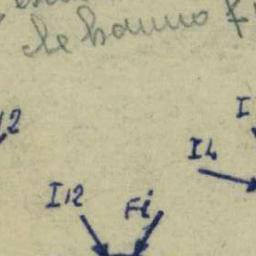 che hanno
I
12
I4
I12 Fi